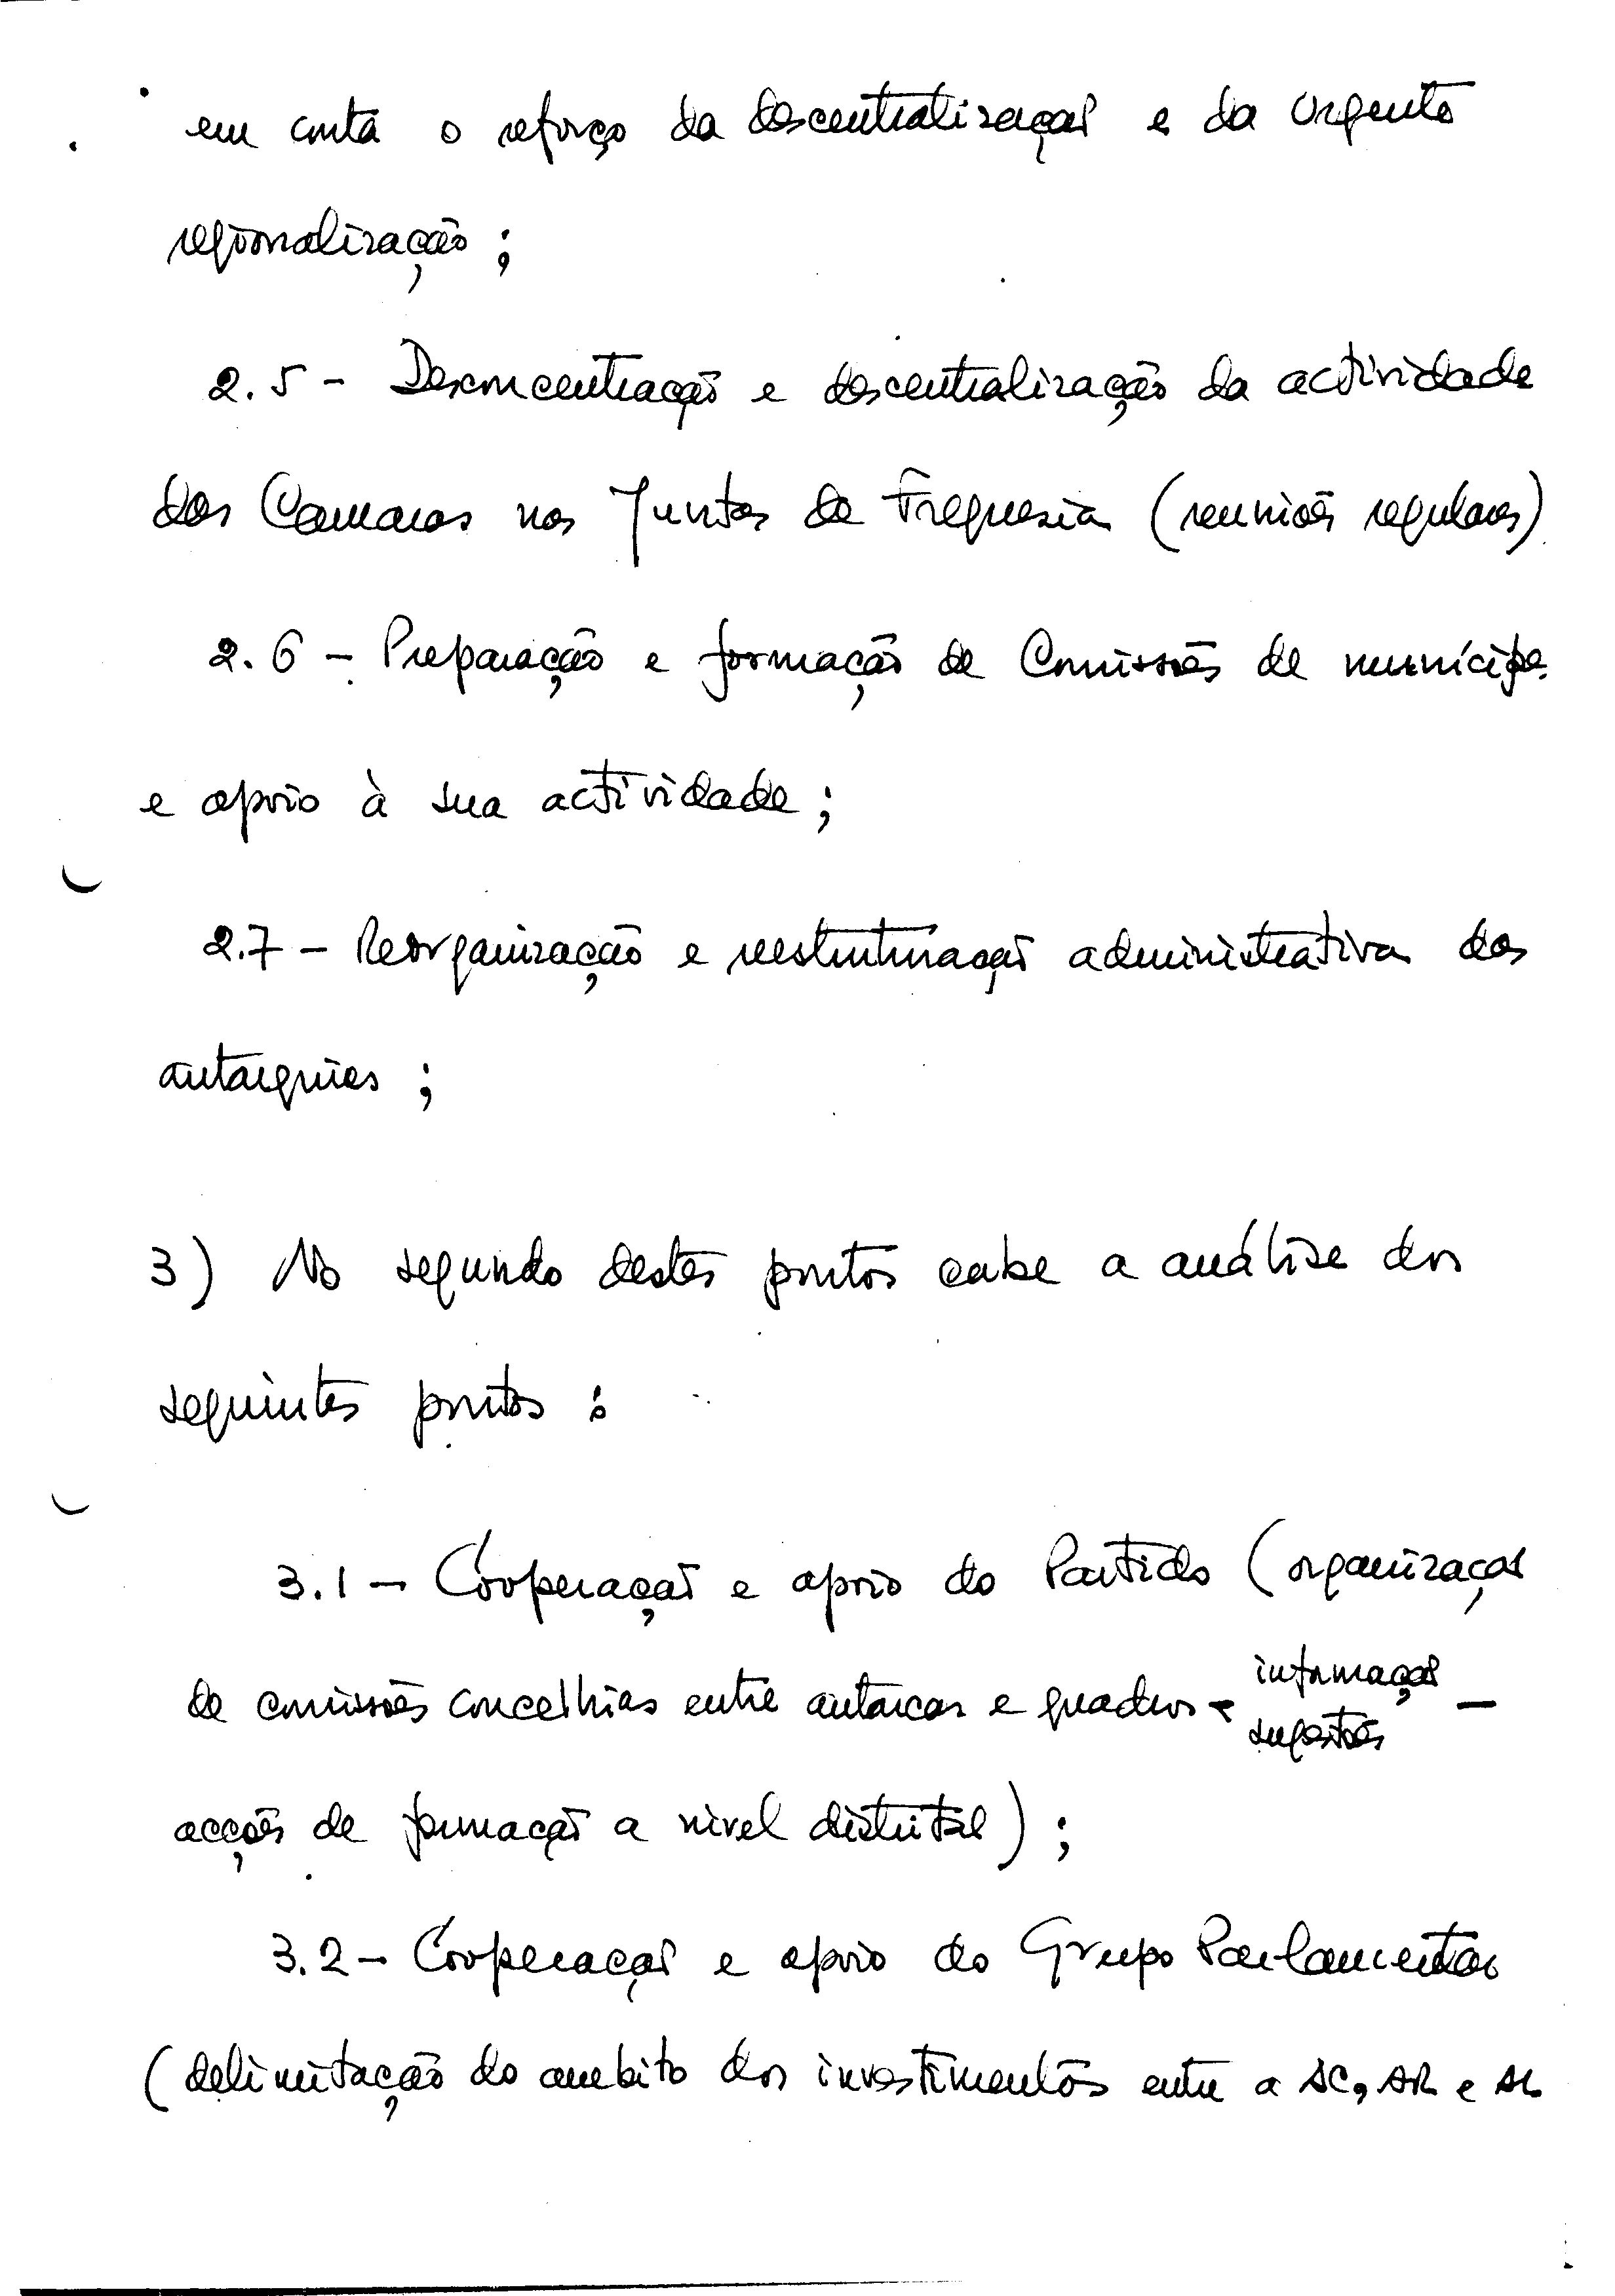 em conta o reforço da descentralização e da urgente
regionalização;
2.5 - Desconcentração e descentralização da actividade
das Camaras nas Juntas de Freguesia (reuniões regulares)
2.6 - Preparação e formação de Comissões de munícipes
e apoio à sua actividade;
2.7 - Reorganização e reestruturação administrativa das
autarquias;
3) No segundo destes pontos cabe a análise dos
seguintes pontos:
3.1 - Cooperação e apoio do Partido (organização
de comissões concelhias entre autarcas e quadros - informação
sugestões -
acções de formação a nivel distrital);
3.2 - Cooperação e apoio do Grupo Parlamentar
(delimitação do ambito dos investimentos entre a AC, AR e AL